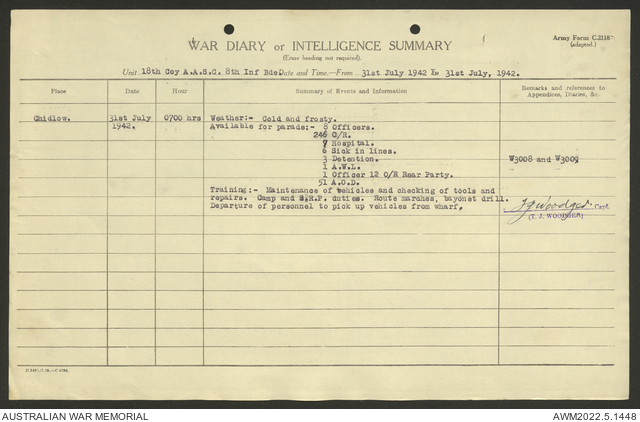 Army Form C.2118
(adapted.)
WAR DIARY or INTELLIGENCE SUMMARY
(Erase heading not required).
Unit 18th Coy A.A.S.C. 8th Inf Bde Date and Time.—From 31st July 1942 to 31st July, 1942.
Place Date Hour Summary of Events and Information Remarks and references to Appendices, Diaries, &c.
Chidlow. 31st July 1942. 0700 hrs Weather:- Cold and frosty.
Available for parade:- 8 Officers.
246 O/R.
9 Hospital.
6 Sick in lines.
3 Detention. W3008 and W3009
1 A.W.L.
1 Officer 12 O/R Rear Party.
51 A.O.D.
Training:- Maintenance of vehicles and checking of tools and
repairs. Camp and S.R.P. duties. Route marches, bayonet drill.
Departure of personnel to pick up vehicles from wharf.
T J Woodger Capt
(T. J. WOODGER)
AUSTRALIAN WAR MEMORIAL
AWM2022.5.1448